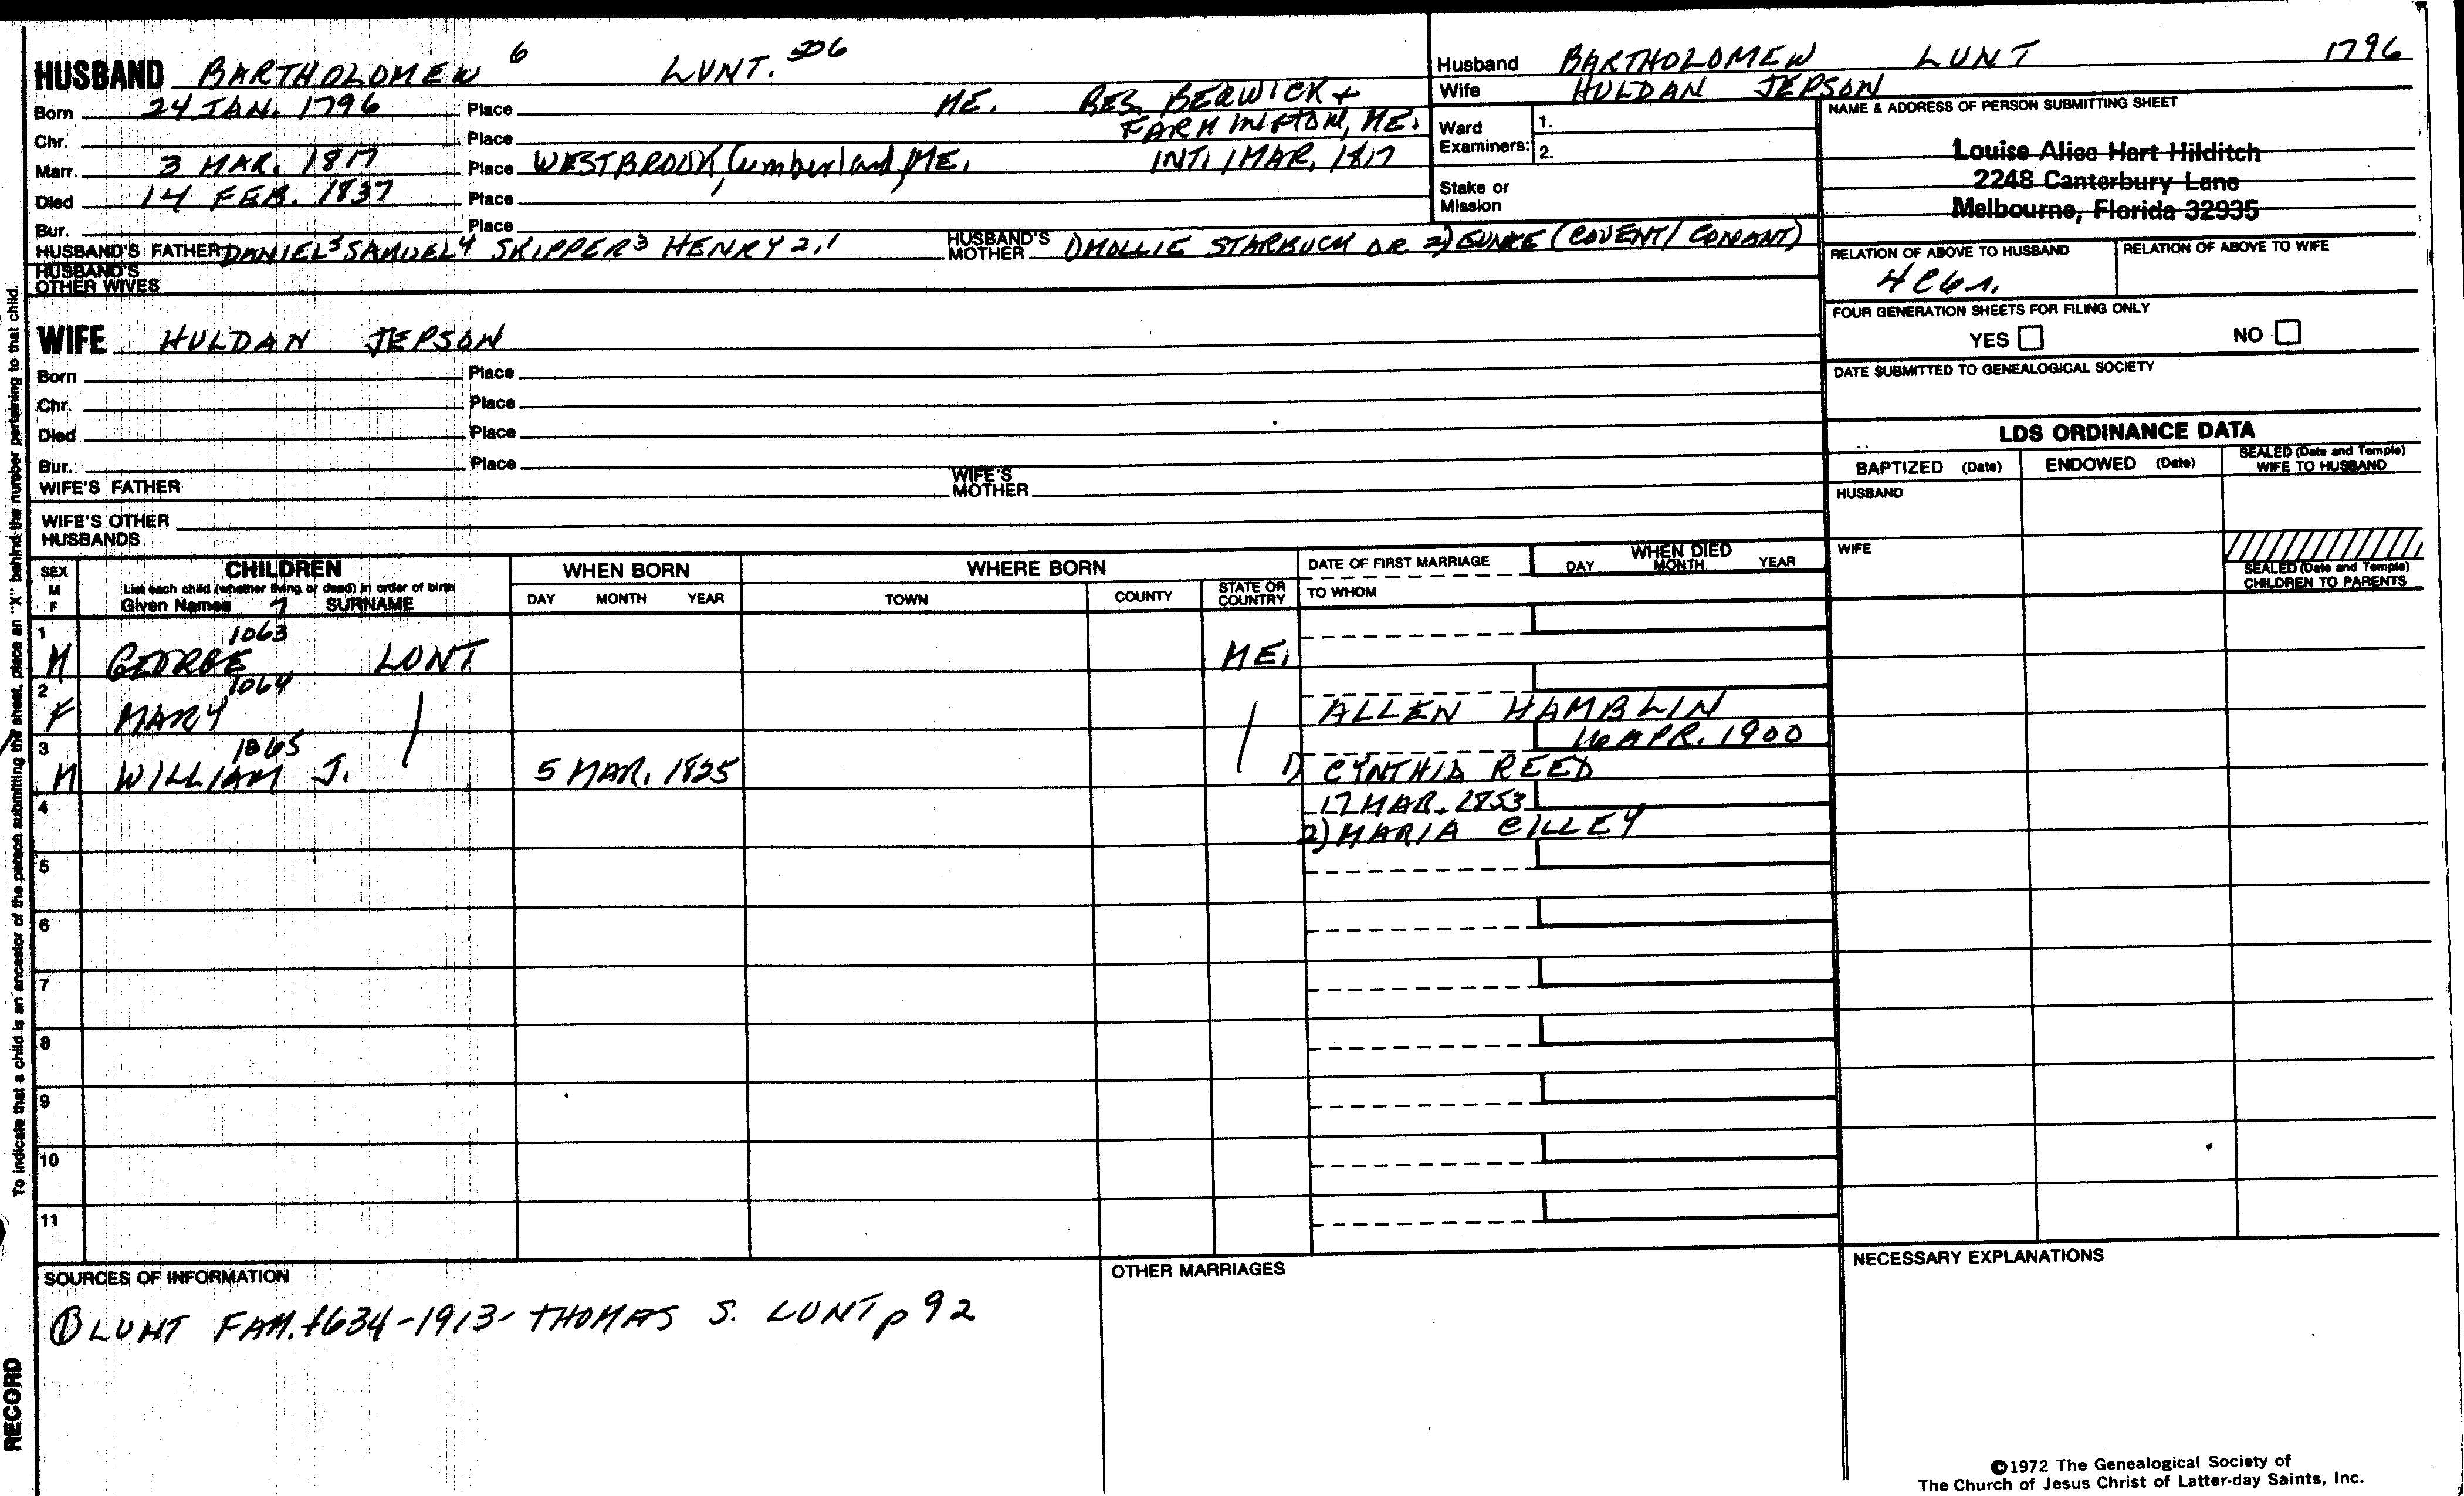 HUSBAND BARTHOLOMEW 6 LUNT. 506
Born 24 JAN. 1796 Place ME. RES. BERWICK +
Chr. Place FARMINGTON, ME.
Marr. 3 MAR. 1817 Place WESTBROOK, Cumberland, ME. INT. 1 MAR. 1817
Died 14 FEB. 1837 Place
Bur. Place
HUSBAND'S FATHER DANIEL5 SAMUEL4 SKIPPER3 HENRY 2,1 HUSBAND'S MOTHER 1) MOLLIE STARBUCK OR 2) EUNICE (COVENT/CONANT)
HUSBAND'S
OTHER WIVES
WIFE HULDAN JEPSON
Born Place
Chr. Place
Died Place
Bur. Place
WIFE'S FATHER WIFE'S MOTHER
WIFE'S OTHER
HUSBANDS
Husband BARTHOLOMEW LUNT 1796
Wife HULDAN JEPSON
Ward Examiners: 1.
2.
Stake or
Mission
NAME & ADDRESS OF PERSON SUBMITTING SHEET
Louise Alice Hart Hilditch
2248 Canterbury Lane
Melbourne, Florida 32935
RELATION OF ABOVE TO HUSBAND RELATION OF ABOVE TO WIFE
FOUR GENERATION SHEETS FOR FILING ONLY
YES NO
DATE SUBMITTED TO GENEALOGICAL SOCIETY
LDS ORDINANCE DATA
BAPTIZED (Date) ENDOWED (Date) SEALED (Date and Temple) WIFE TO HUSBAND
HUSBAND
WIFE
SEALED (Date and Temple)
CHILDREN TO PARENTS
SEX M F CHILDREN WHEN BORN WHERE BORN DATE OF FIRST MARRIAGE WHEN DIED
List each child (whether living or dead) in order of birth
Given Names 7 SURNAME DAY MONTH YEAR TOWN COUNTY STATE OR COUNTRY TO WHOM DAY MONTH YEAR
1 1063
M GEORGE LUNT ME.
2 1064
F MARY ALLEN HAMBLIN
3 1065 16 APR. 1900
M WILLIAM J. 5 MAR. 1825 1) CYNTHIA REED
4 17 MAR. 1853
2) MARIA CILLEY
5
6
7
8
9
10
11
SOURCES OF INFORMATION
① LUNT FAM. 1634-1913- THOMAS S. LUNT p 92
OTHER MARRIAGES
NECESSARY EXPLANATIONS
©1972 The Genealogical Society of
The Church of Jesus Christ of Latter-day Saints, Inc.
To indicate that a child is an ancestor of the person submitting the sheet, place an "X" behind the number pertaining to that child.
RECORD